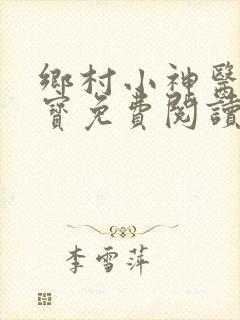 鄉村小神醫
寶免費閱讀
李雪萍